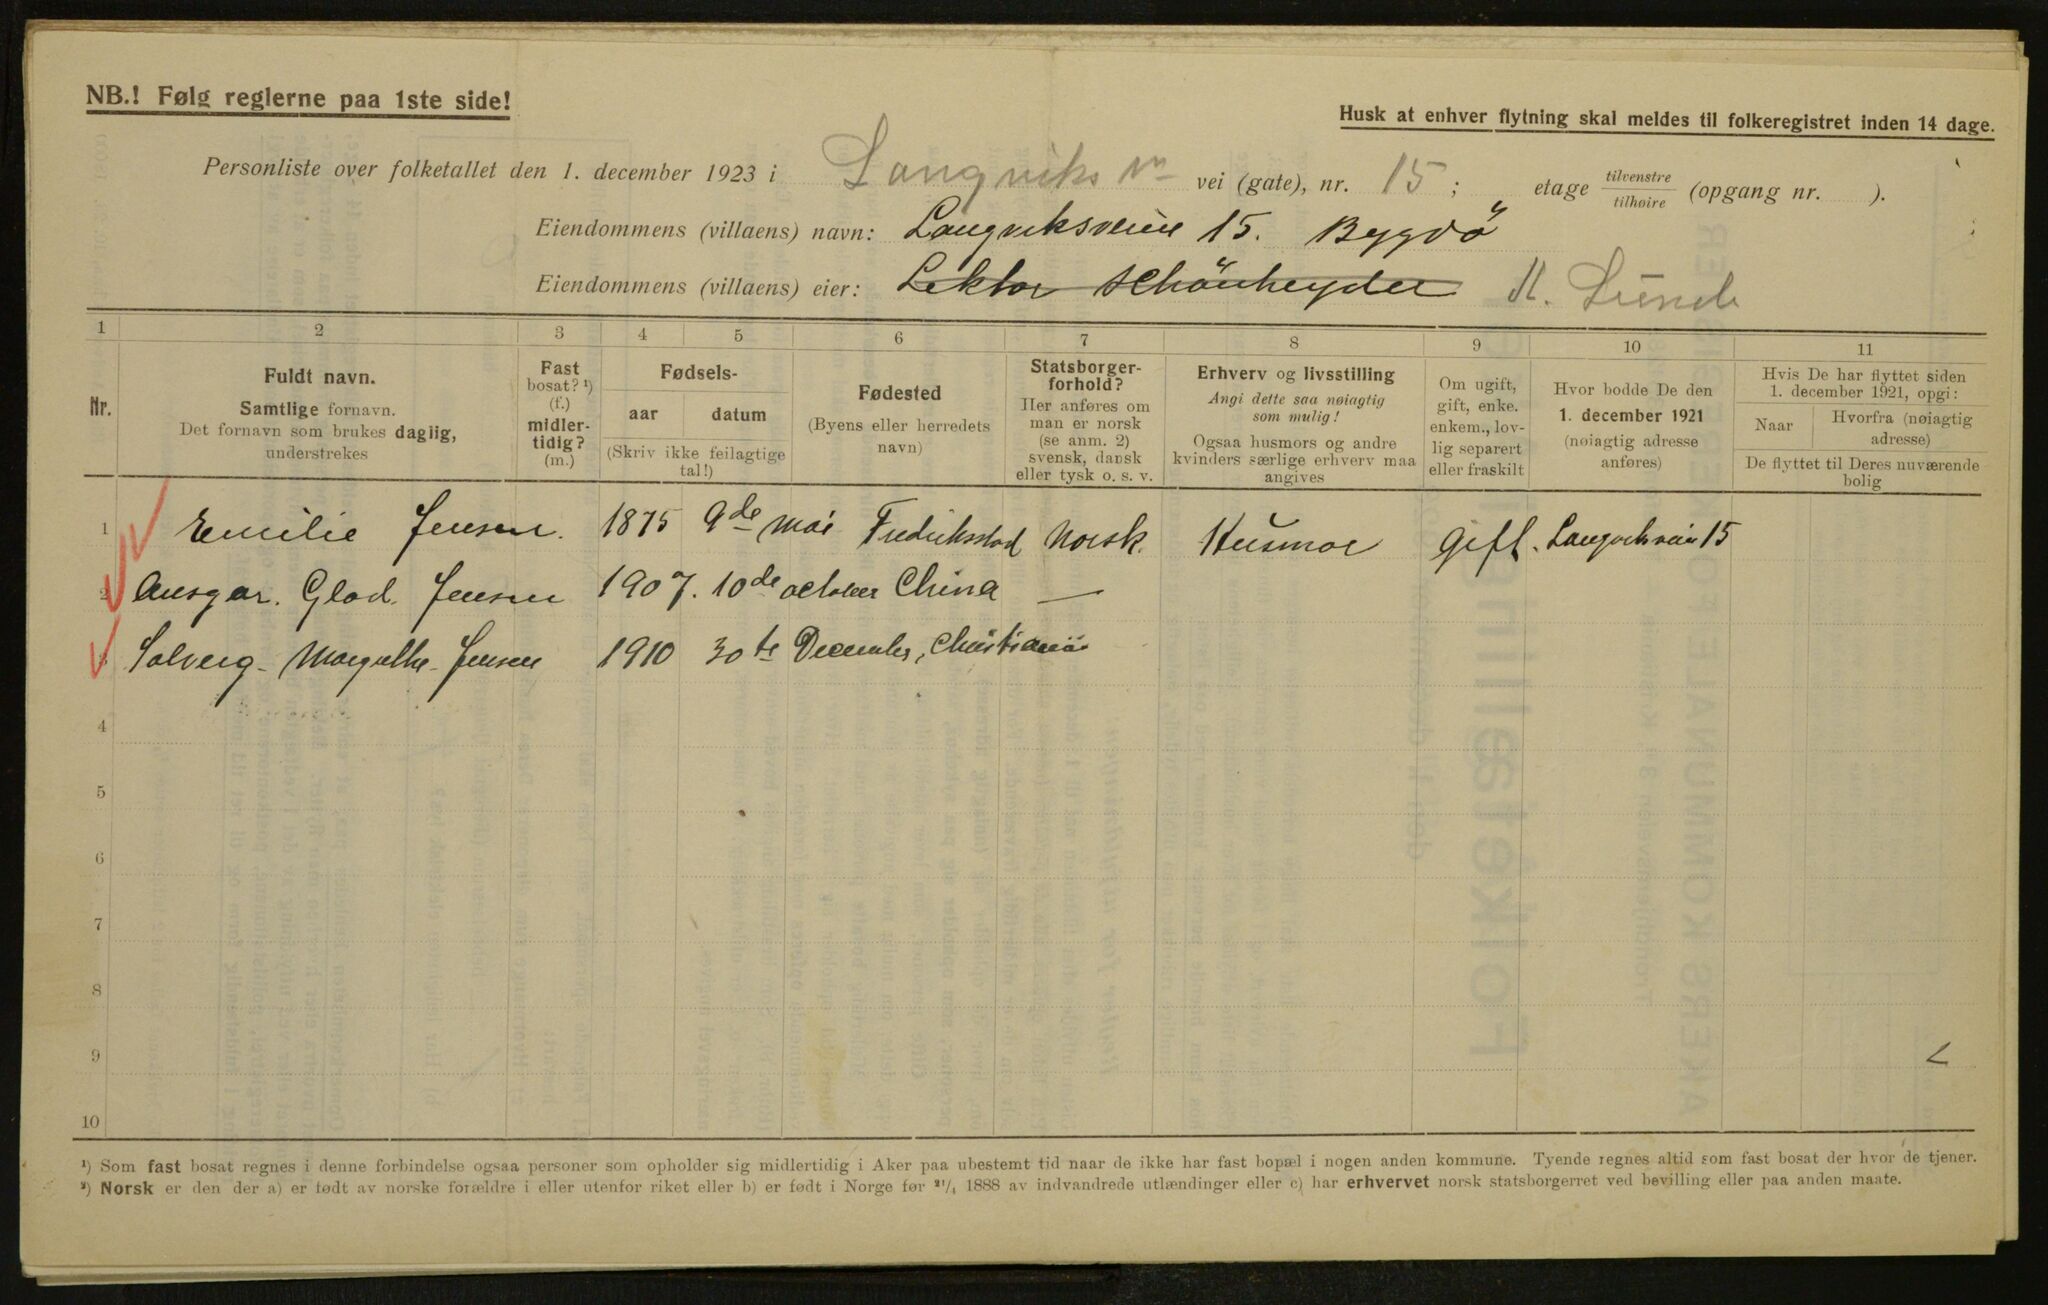 NB.! Følg reglerne paa 1ste side!
Husk at enhver flytning skal meldes til folkeregistret inden 14 dage.
Personliste over folketallet den 1. december 1923 i Langviks vn vei (gate), nr. 15; etage tilvenstre tilhøire (opgang nr. ).
Eiendommens (villaens) navn: Langviksveien 15. Bygdö
Eiendommens (villaens) eier: Lektor Schönheyder Lunde
1 2 3 4 5 6 7 8 9 10 11
Nr.
Fuldt navn.
Samtlige fornavn.
Det fornavn som brukes daglig,
understrekes
Fast
bosat? ¹)
(f.)
midler-
tidig?
(m.)
Fødsels-
aar datum
(Skriv ikke feilagtige
tal!)
Fødested
(Byens eller herredets
navn)
Statsborger-
forhold?
Her anføres om
man er norsk
(se anm. 2)
svensk, dansk
eller tysk o. s. v.
Erhverv og livsstilling
Angi dette saa nøiagtig
som mulig!
Ogsaa husmors og andre
kvinders særlige erhverv maa
angives
Om ugift,
gift, enke.
enkem., lov-
lig separert
eller fraskilt
Hvor bodde De den
1. december 1921
(nøiagtig adresse
anføres)
Hvis De har flyttet siden
1. december 1921, opgi:
Naar
Hvorfra (nøiagtig
adresse)
De flyttet til Deres nuværende
bolig
1 Emilie Jensen. 1875 9de mai Fredriksstad Norsk. Husmor gift. Langviksvei 15
2 Ansgar. Glad. Jensen 1907. 10de october China —
3 Solveig - Margrethe - Jensen 1910 30te December, Christiania
4
5
6
7
8
9
10
¹) Som fast bosat regnes i denne forbindelse ogsaa personer som opholder sig midlertidig i Aker paa ubestemt tid naar de ikke har fast bopæl i nogen anden kommune. Tyende regnes altid som fast bosat der hvor de tjener.
²) Norsk er den der a) er født av norske forældre i eller utenfor riket eller b) er født i Norge før ²¹/₄ 1888 av indvandrede utlændinger eller c) har erhvervet norsk statsborgerret ved bevilling eller paa anden maate.